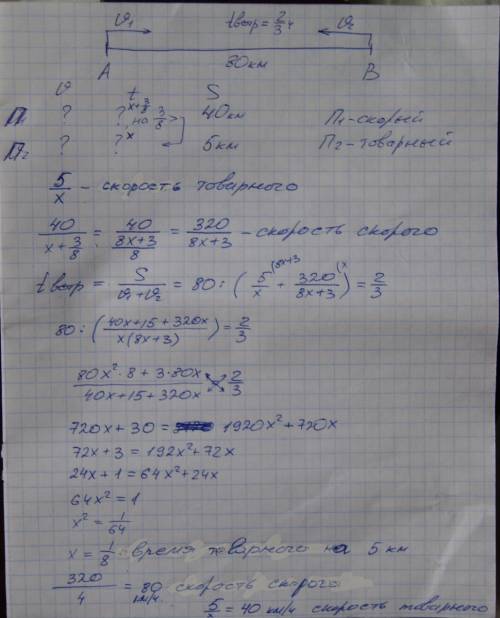 ϑ₁ tвстр = 2/3 ч ϑ₂
A 80км B
ϑ t S
П₁ ? ? x+3/8 на 3/8 > 40км П₁-скорый
П₂ ? ? x 5км П₂-товарный
5/x - скорость товарного
40/(x+3/8) = 40/((8x+3)/8) = 320/(8x+3) - скорость скорого
tвстр = S/(ϑ₁+ϑ₂) = 80:(5/x (8x+3 + 320/(8x+3) (x) = 2/3
80:((40x+15+320x)/(x(8x+3))) = 2/3
(80x²·8+3·80x)/(40x+15+320x) 2/3
720x+30 = 1920x²+720x
72x+3 = 192x²+72x
24x+1 = 64x²+24x
64x² = 1
x² = 1/64
x = 1/8 время товарного на 5 км
320/4 = 80 км/ч скорость скорого
5/x = 40 км/ч скорость товарного